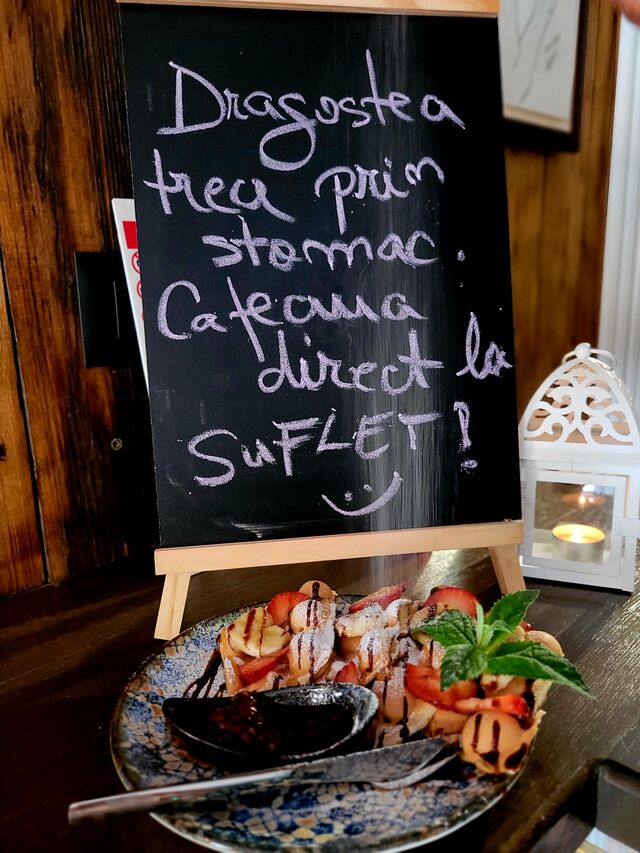 Dragostea
trea prin
stomac.
Cafeaua
direct la
SUFLET!